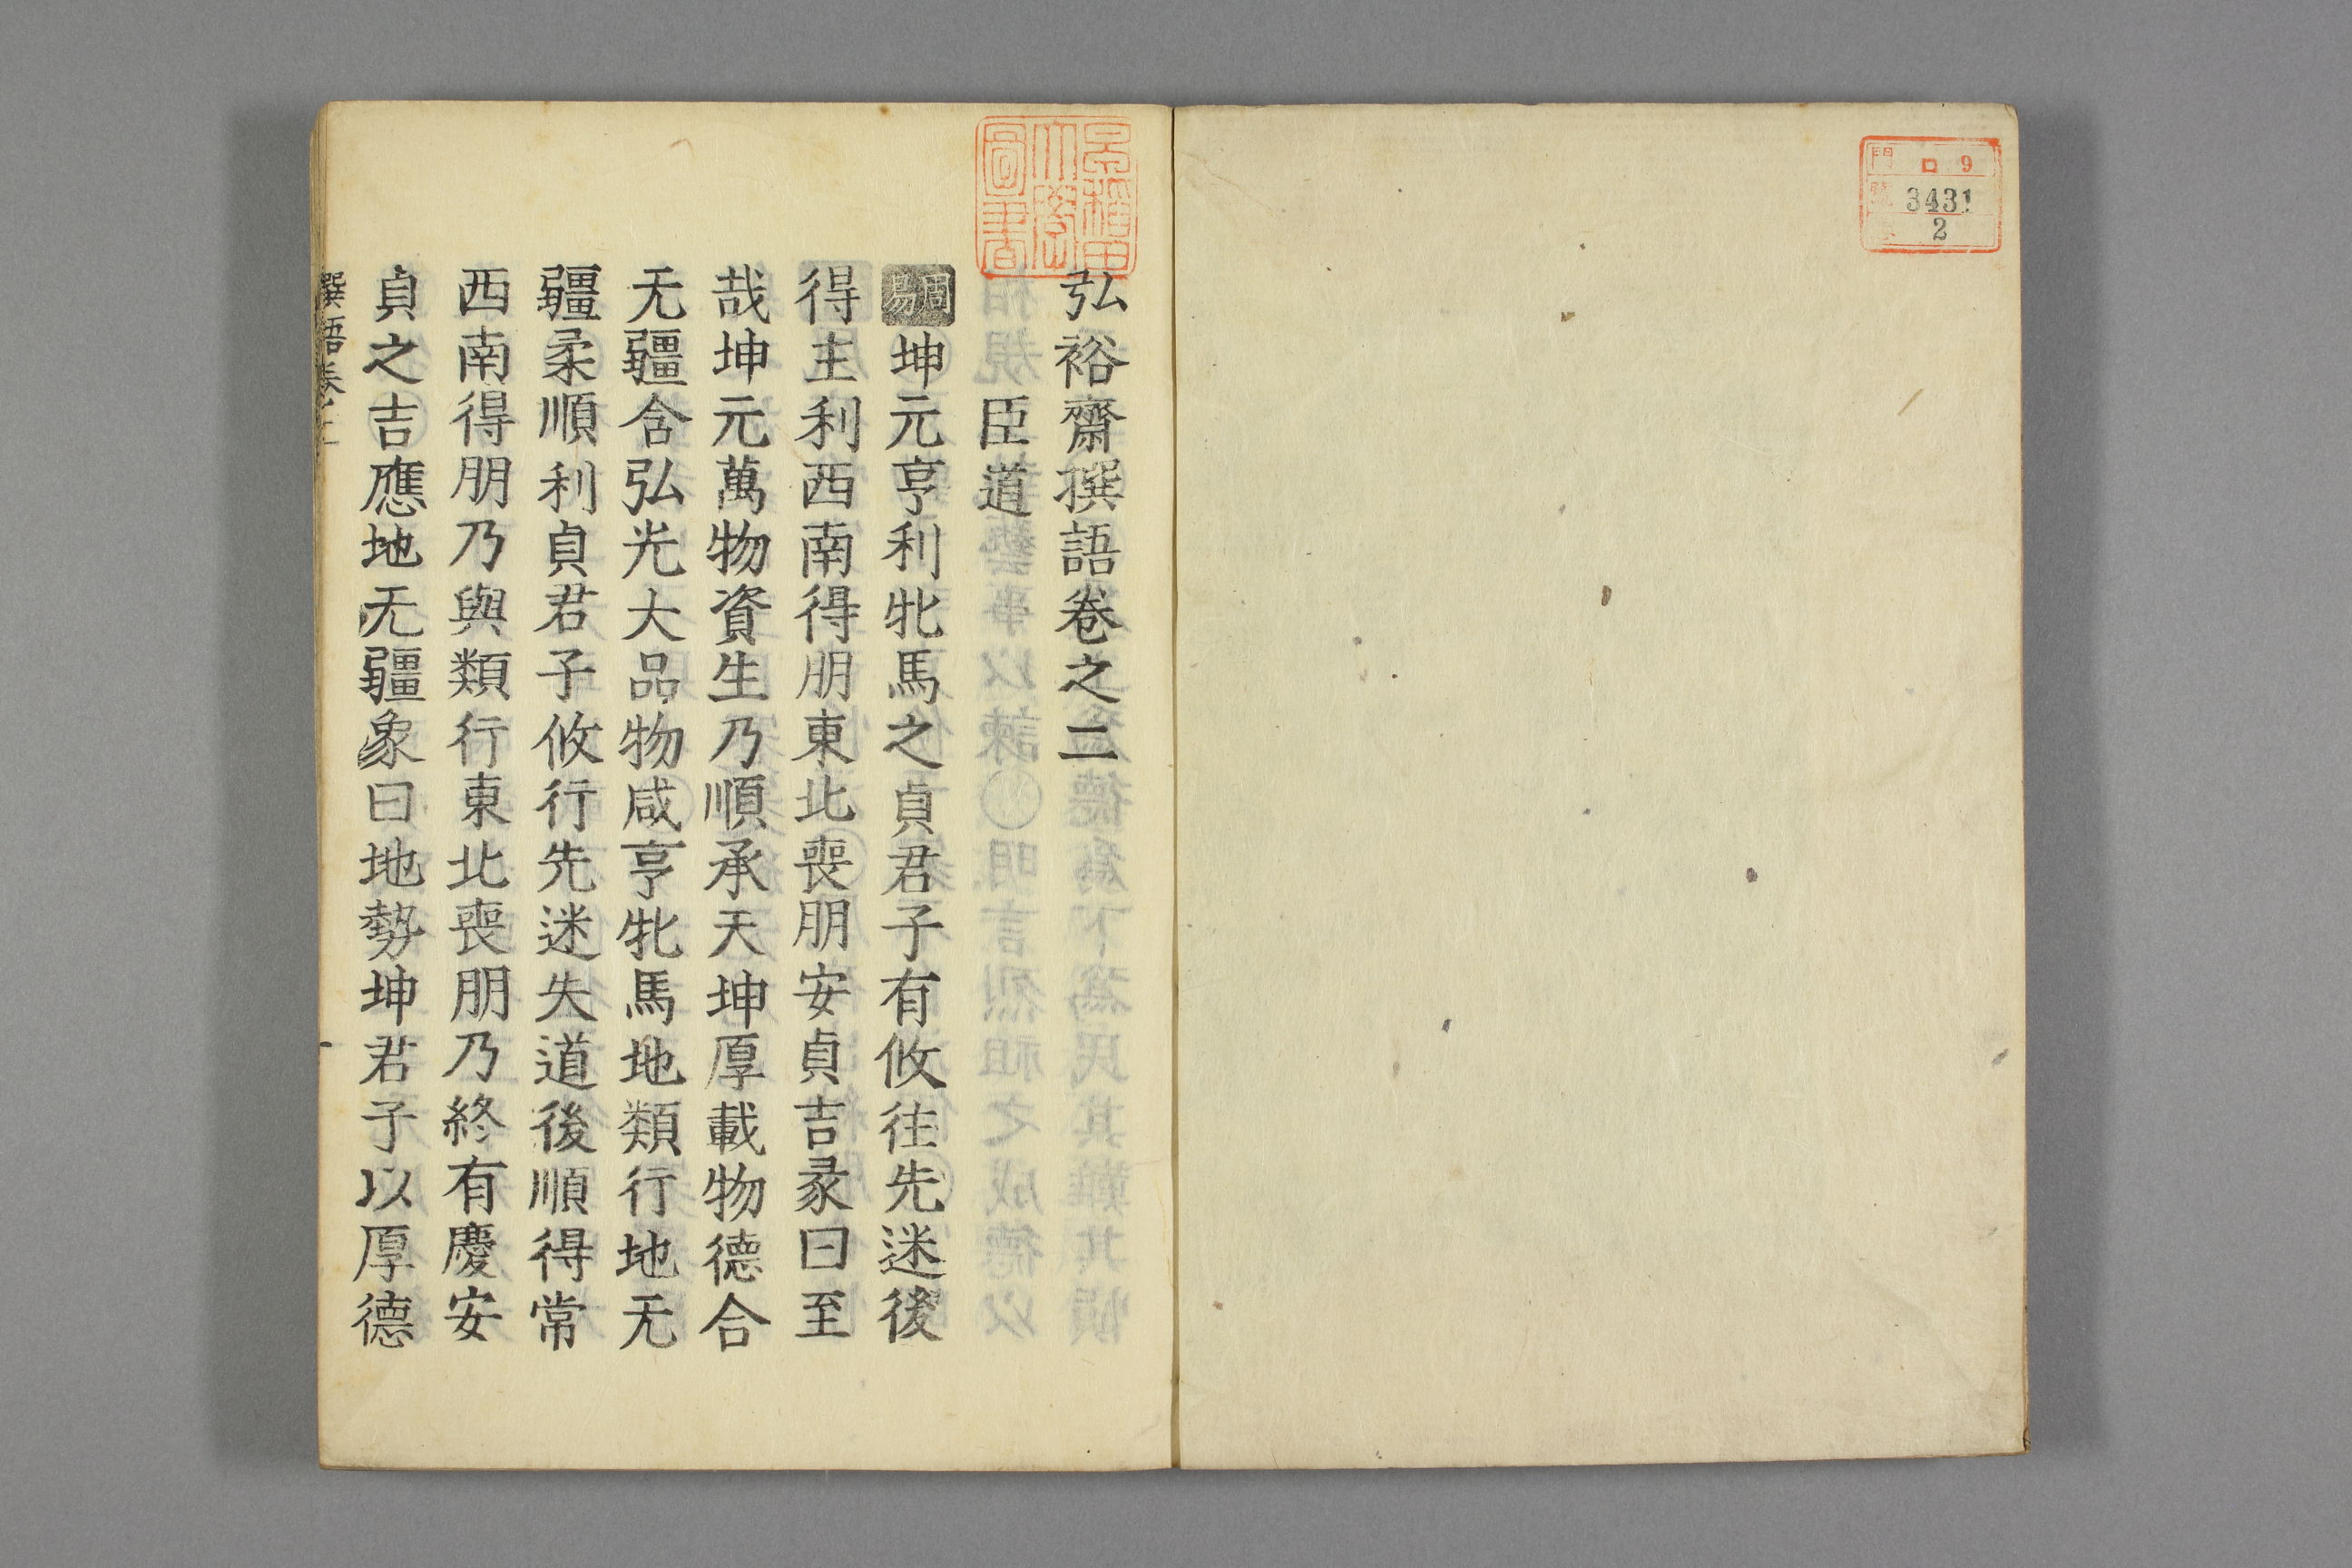 門 ロ 9
號 3431
2
早稻田
大學
圖書
弘裕齋撰語卷之二
臣道
周易坤元亨利牝馬之貞君子有攸往先迷後
得主利西南得朋東北喪朋安貞吉彖曰至
哉坤元萬物資生乃順承天坤厚載物德合
无疆含弘光大品物咸亨牝馬地類行地无
疆柔順利貞君子攸行先迷失道後順得常
西南得朋乃與類行東北喪朋乃終有慶安
貞之吉應地无疆象曰地勢坤君子以厚德
撰語卷之二